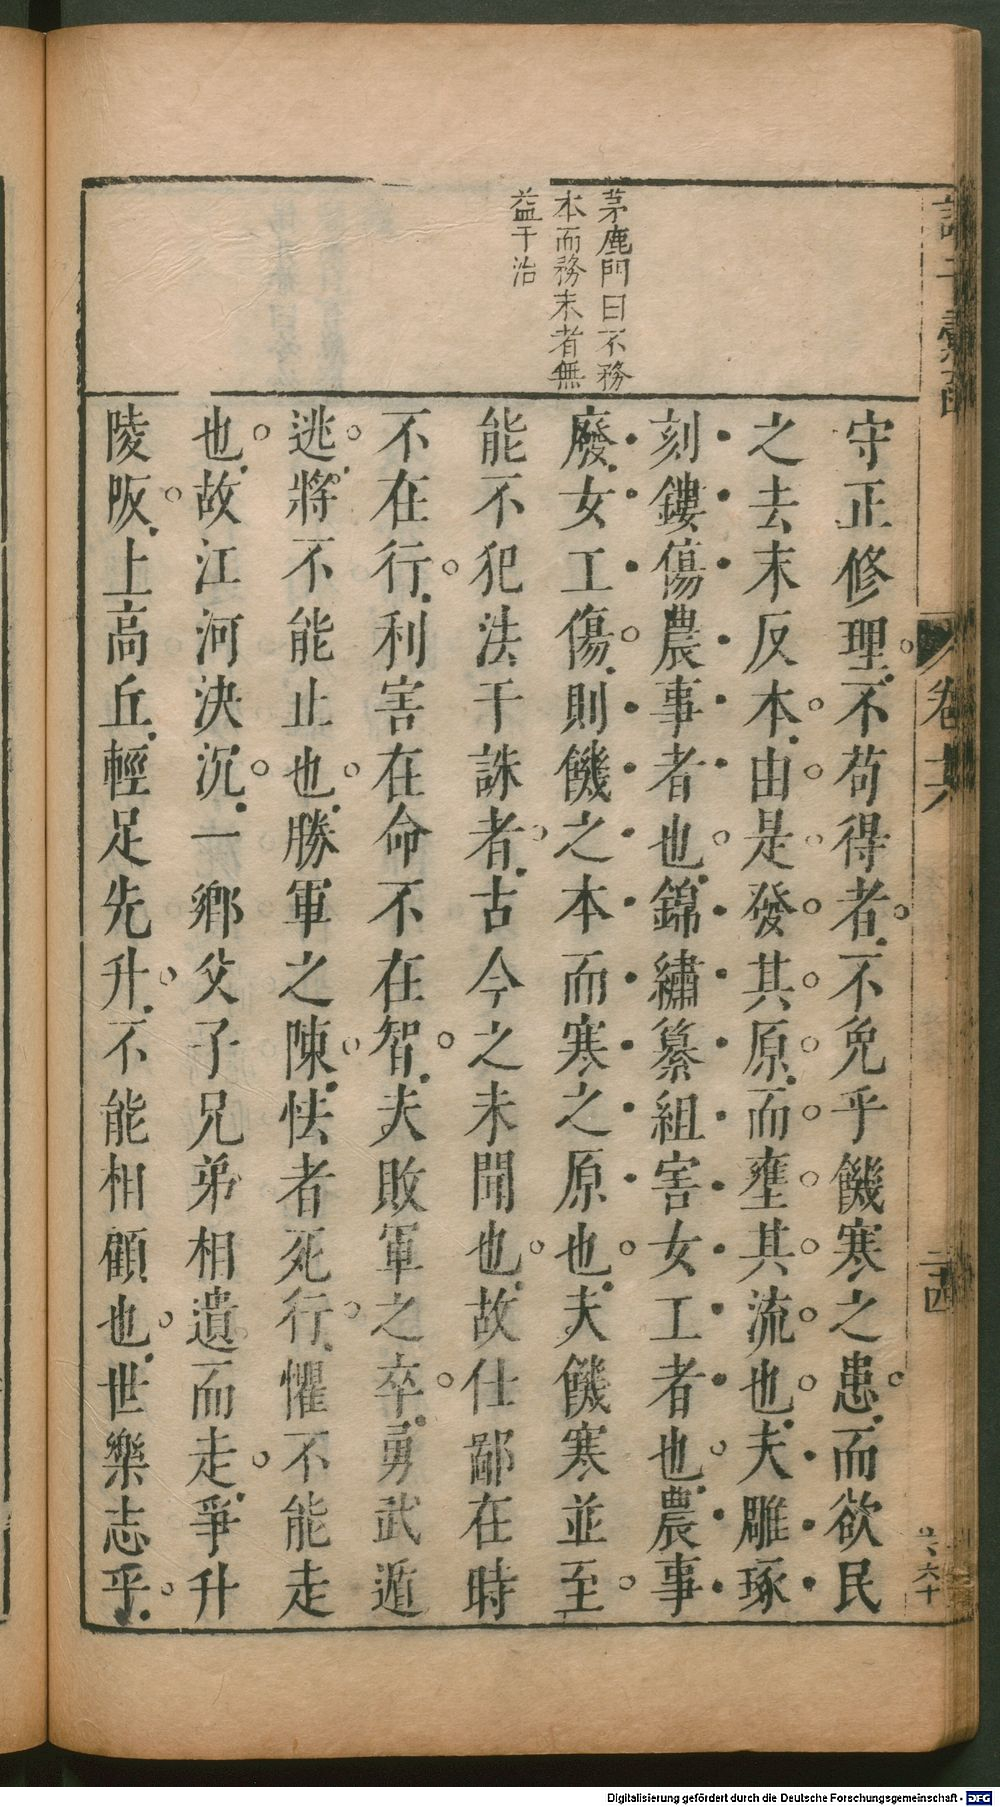 茅鹿門曰不務
本而務末者無
益于治
守正修理不苟得者不免乎饑寒之患而欲民
之去末反本由是發其原而壅其流也夫雕琢
刻鏤傷農事者也錦繡纂組害女工者也農事
廢女工傷則饑之本而寒之原也夫饑寒並至
能不犯法干誅者古今之未聞也故仕鄙在時
不在行利害在命不在智夫敗軍之卒勇武遁
逃將不能止也勝軍之陳怯者死行懼不能走
也故江河決沉一鄉父子兄弟相遺而走爭升
陵阪上高丘輕足先升不能相顧也世樂志乎
卷六
二四
Digitalisierung gefördert durch die Deutsche Forschungsgemeinschaft - DFG